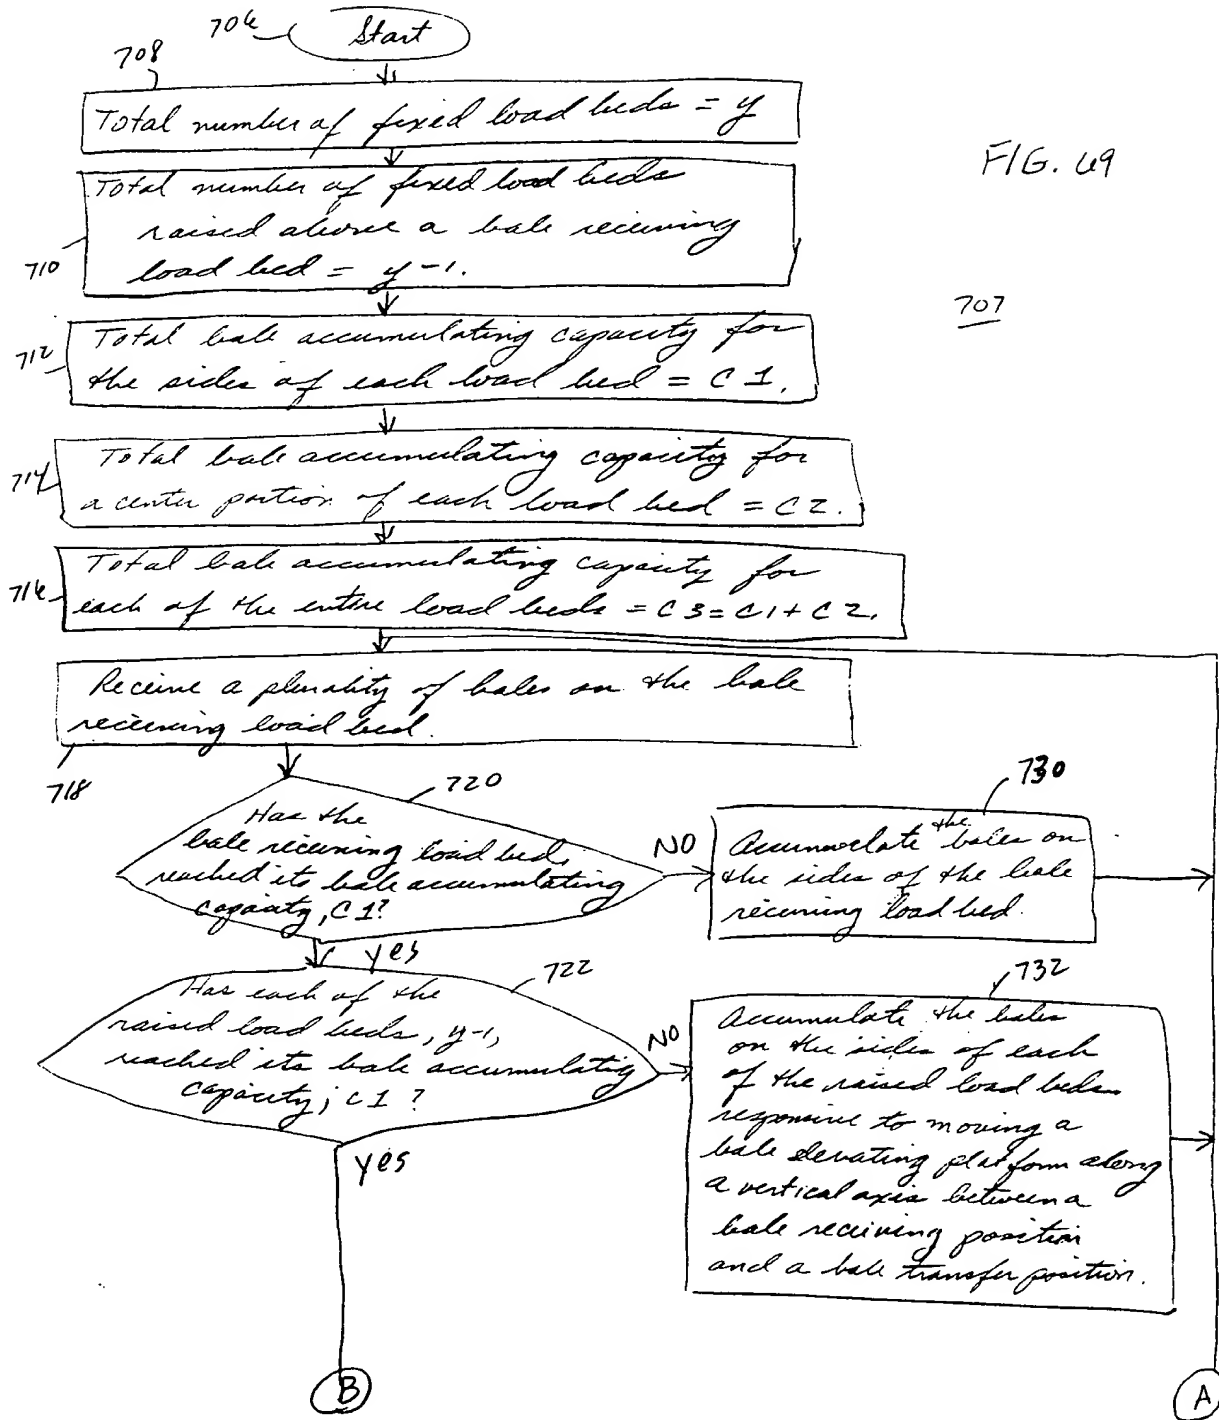 706
Start
708
Total number of fixed load beds = y
FIG. 69
Total number of fixed load beds
raised above a bale receiving
load bed = y-1.
710
707
Total bale accumulating capacity for
the sides of each load bed = C1.
712
Total bale accumulating capacity for
a center portion of each load bed = C2.
714
Total bale accumulating capacity for
each of the entire load beds = C3=C1+C2.
716
Receive a plurality of bales on the bale
receiving load bed.
718
720
Has the
bale receiving load bed
reached its bale accumulating
capacity, C1?
NO
730
Accumulate the bales on
the sides of the bale
receiving load bed.
yes
722
Has each of the
raised load beds, y-1,
reached its bale accumulating
capacity, C1?
NO
732
Accumulate the bales
on the sides of each
of the raised load beds
responsive to moving a
bale elevating platform along
a vertical axis between a
bale receiving position
and a bale transfer position.
yes
B
A